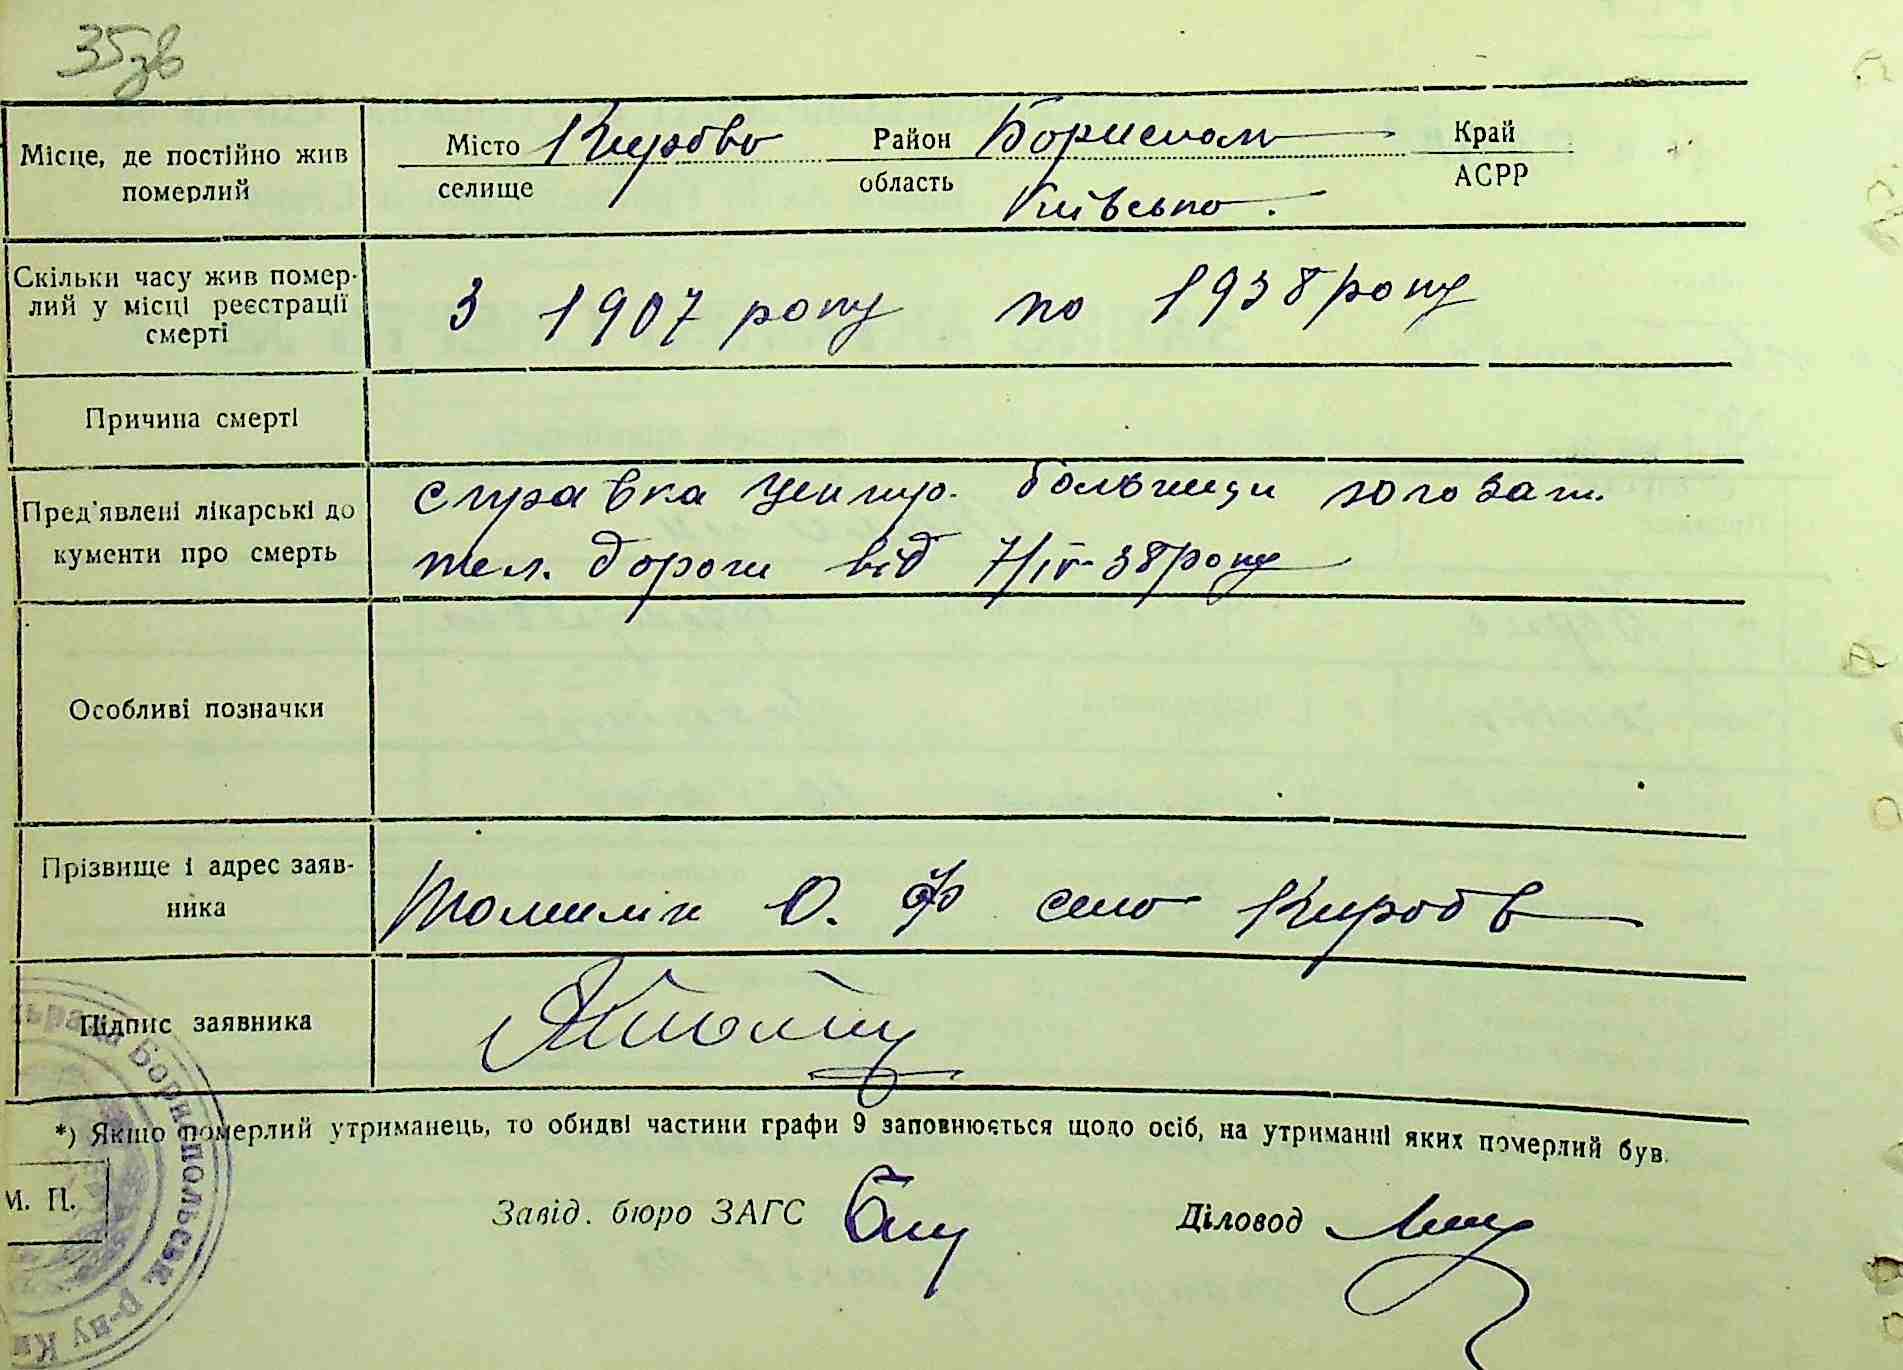 35зв
Місце, де постійно жив
померлий
Місто Кирово Район Бориспол Край
селище область АСРР
Київсько.
Скільки часу жив помер-
лий у місці реєстрації
смерті
З 1907 року по 1938 року
Причина смерті
Пред'явлені лікарські до
кументи про смерть
справка центр. больници югозап.
жел. дороги від 7/IV-38 року
Особливі позначки
Прізвище і адрес заяв-
ника
Томилін О. Ф село Киров
Підпис заявника
*) Якщо померлий утриманець, то обидві частини графи 9 заповнюється щодо осіб, на утриманні яких померлий був.
М. П.
Бориспольськ. р-ну
Завід. бюро ЗАГС
Діловод